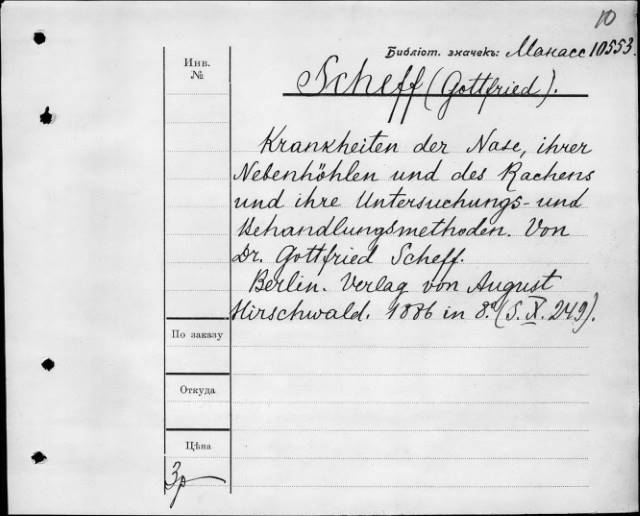 10
Библіот. значекъ: Манасс 10553.
Инв.
№
Scheff (Gottfried).
Krankheiten der Nase, ihrer
Nebenhöhlen und des Rachens
und ihre Untersuchungs- und
Behandlungsmethoden. Von
Dr. Gottfried Scheff.
Berlin. Verlag von August
Hirschwald. 1886 in 8.° (S. X. 249).
По заказу
Откуда
Цѣна
3р